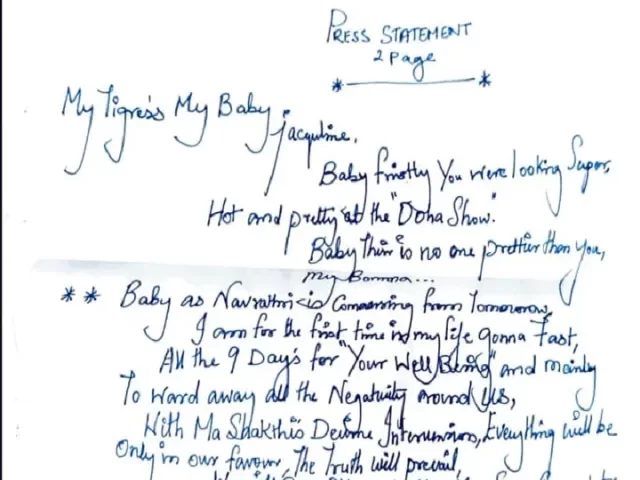 PRESS STATEMENT
2 Page
My Tigress My Baby Jacquline,
Baby firstly You were looking Super,
Hot and pretty at the "Doha Show".
Baby Their is no one prettier than you,
my Bomma...
** Baby as Navrathri is Commencing from Tomorrow,
I am for the first time in my life gonna Fast,
All the 9 Day's for "Your Well Being" and mainly
To ward away all the Negativity around Us,
With Ma Shakthi's Devine Intervension, Everything will be
Only in our favour, The Truth will prevail,